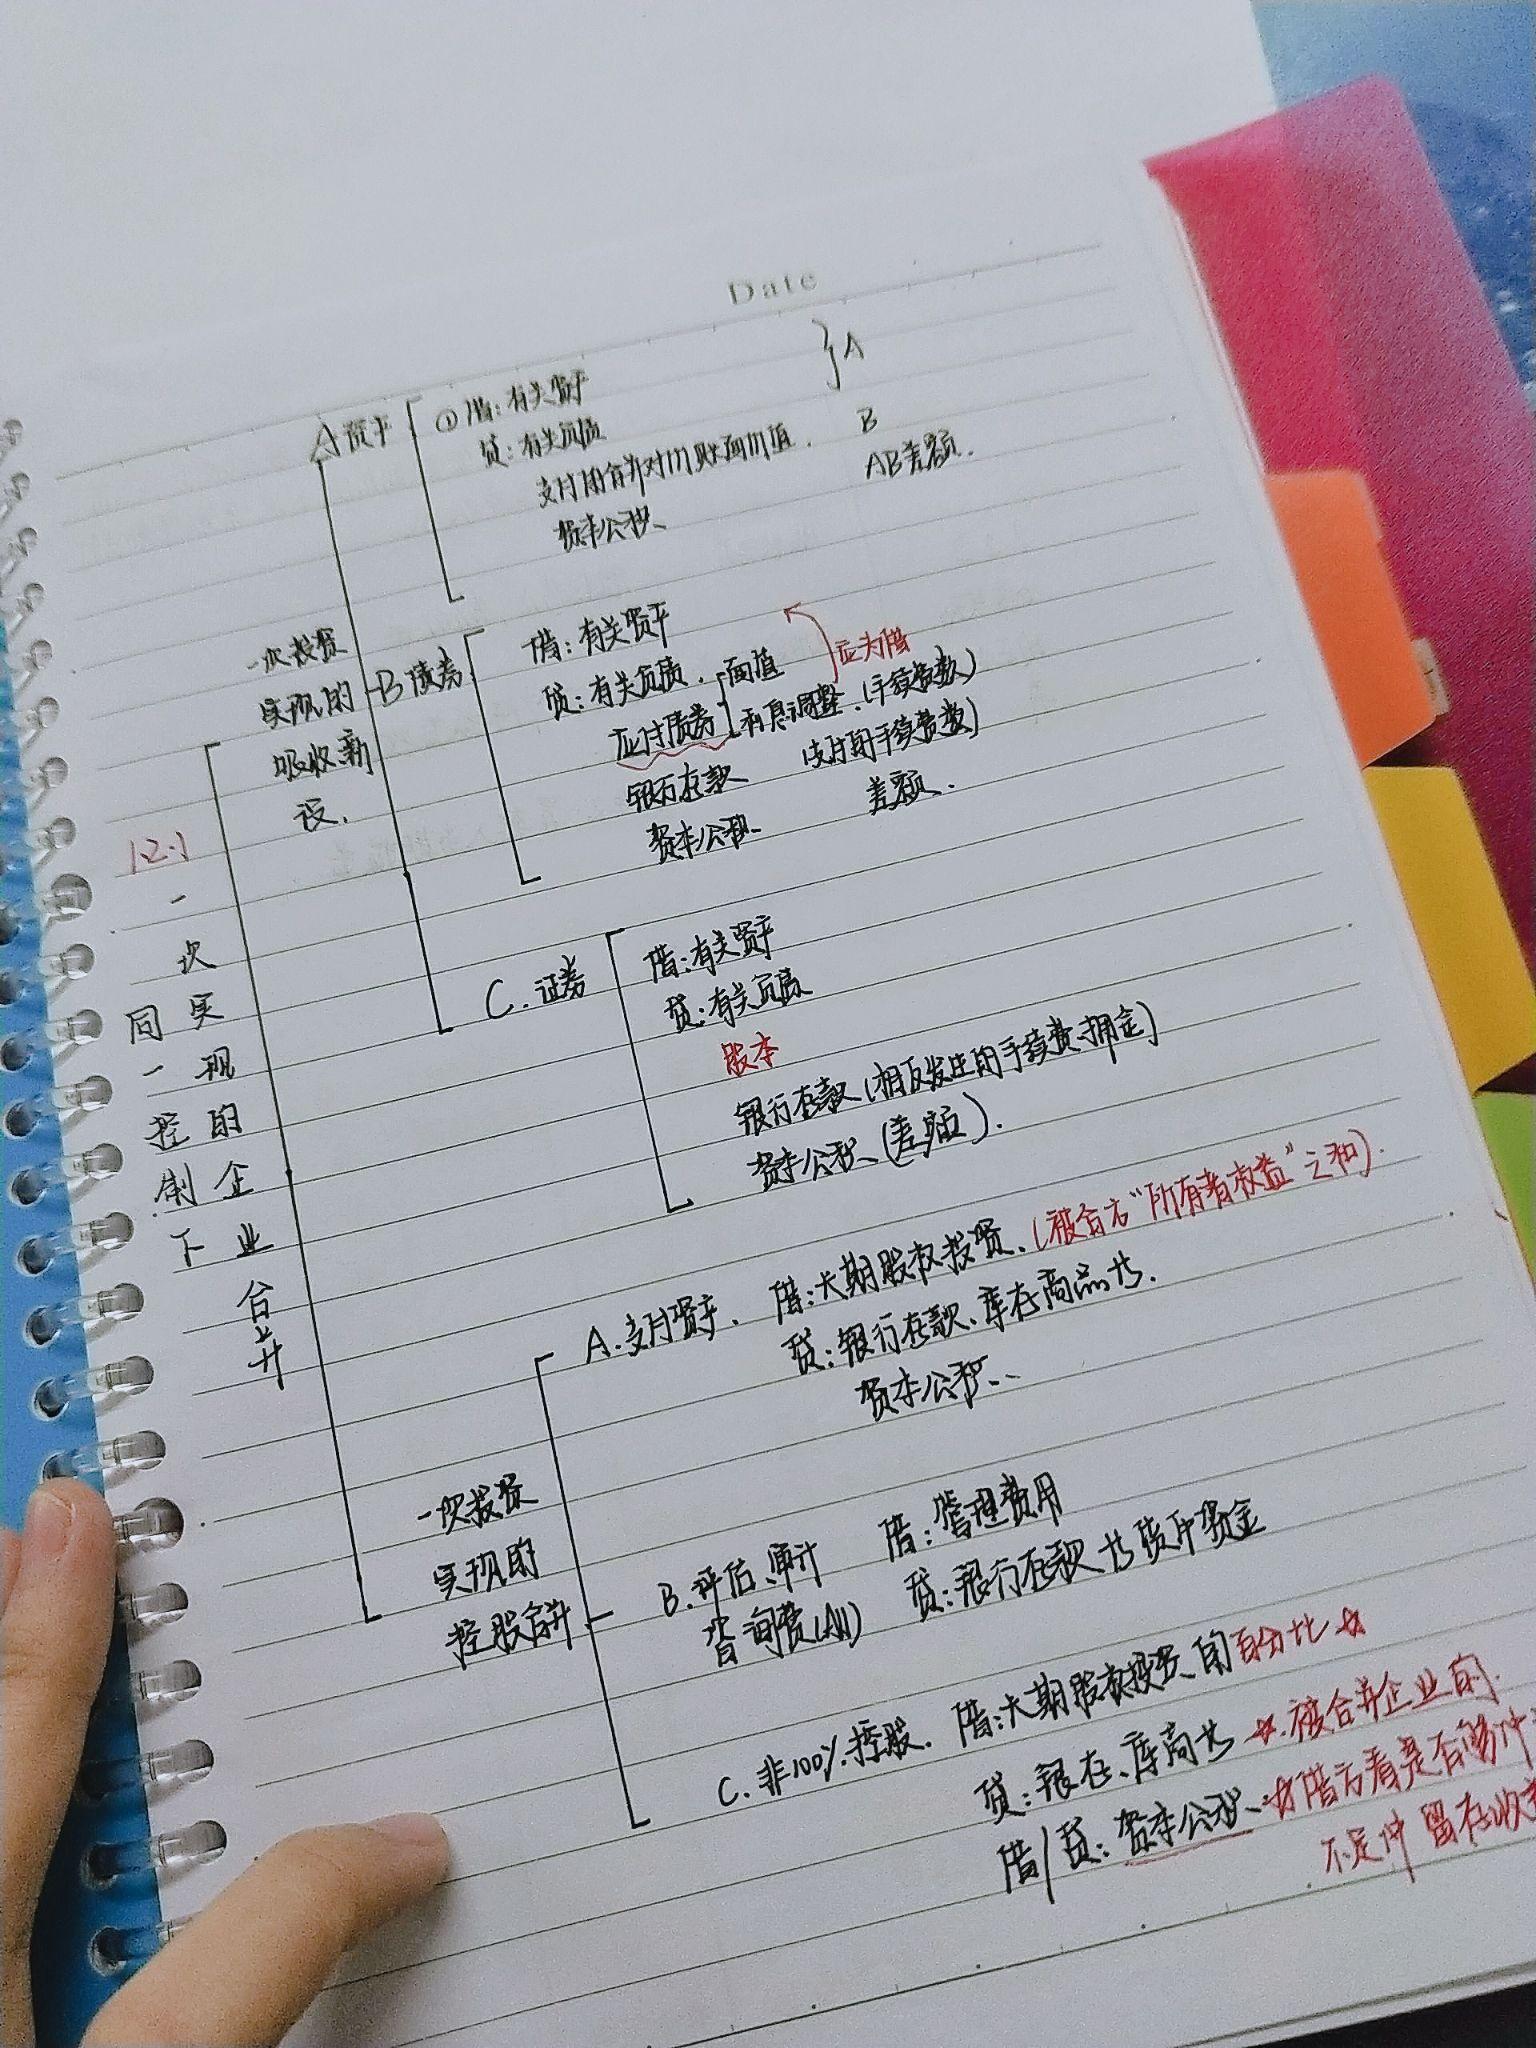 Date
A 资产
① 借：有关资产
贷：有关负债
}A
支付的合并对价账面价值. B
资本公积、 AB差额.
一次投资
实现的
吸收新
设.
B 债券
借：有关资产
贷：有关负债. 面值
应为借
应付债券 利息调整.(手续费数)
银行存款 (支付的手续费数)
资本公积、 差额.
1.2.1
一次实现的企业合并
同一控制下
C. 证券
借：有关资产
贷：有关负债
股本
银行存款(相反发生的手续费、拥金)
资本公积、(差额).
一次投资
实现的
控股合并
A. 支付资产. 借：长期股权投资、(被合方“所有者权益”之和).
贷：银行存款、库存商品
资本公积、.
B. 评估、审计
咨询费(All)
借：管理费用
贷：银行存款 货币资金
C. 非100%控股. 借：长期股权投资、的百分比☆
贷：银存、库商 ☆.被合并企业的.
借/贷：资本公积、☆借方看是否够冲
不足冲 留存收